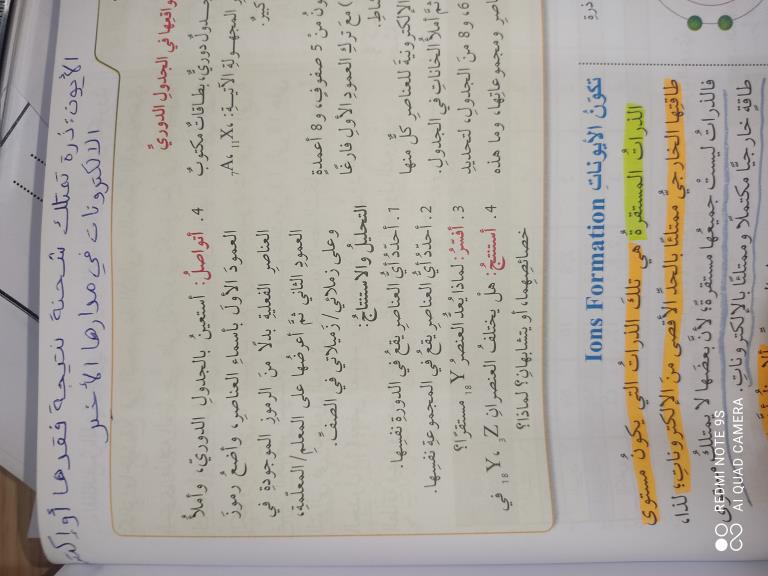 الأيون: ذرة تمتلك شحنة نتيجة فقدها أو
الالكترونات في مدارها الأخير
في الجدول الدوريّ
دوريٌّ، بطاقات مكتوبٌ
المجهولة الآتية: ₁₁X،
كبيرٌ.
من 5 صفوفٍ، و8 أعمدةٍ
مع تركِ العمودِ الأولِ فارغًا
الإلكترونيةَ للعناصرِ كلٌّ منها
ثم أملأُ الخاناتِ في الجدولِ.
6، و8 منَ الجدولِ، لتحديدِ
ومجموعاتِها، وما هذه
4. أتواصلُ: أستعينُ بالجدولِ الدوريِّ، وأملأُ
العمودَ الأولَ بأسماءِ العناصرِ، وأضعُ رموزَ
العناصرِ الفعليةِ بدلًا منَ الرموزِ الموجودةِ في
العمودِ الثاني ثمَّ أعرضُها على المعلمِ/ المعلمةِ،
وعلى زملائي/ زميلاتي في الصفِّ.
التحليلُ والاستنتاجُ:
1. أحدّدُ أيُّ العناصرِ يقعُ في الدورةِ نفسِها.
2. أحدّدُ أيُّ العناصرِ يقعُ في المجموعةِ نفسِها.
3. أفسّرُ: لماذا يُعدُّ العنصرُ ₁₈Y مستقرًا؟
4. أستنتجُ: هل يختلفُ العنصرانِ ₃Z ،₁₈Y في
خصائصِهما، أو يتشابهانِ؟ لماذا؟
ذرة
تكوّنُ الأيوناتِ Ions Formation
الذراتُ المستقرةُ هي تلكَ الذراتُ التي يكونُ مستوى
طاقتِها الخارجيُّ ممتلئًا بالحدِّ الأقصى منَ الإلكتروناتِ؛ لذا،
فالذراتُ ليستْ جميعُها مستقرةً؛ لأنَّ بعضَها لا يمتلكُ
طاقةٍ خارجيًّا مكتملًا وممتلئًا بالإلكتروناتِ.
REDMI NOTE 9S
AI QUAD CAMERA